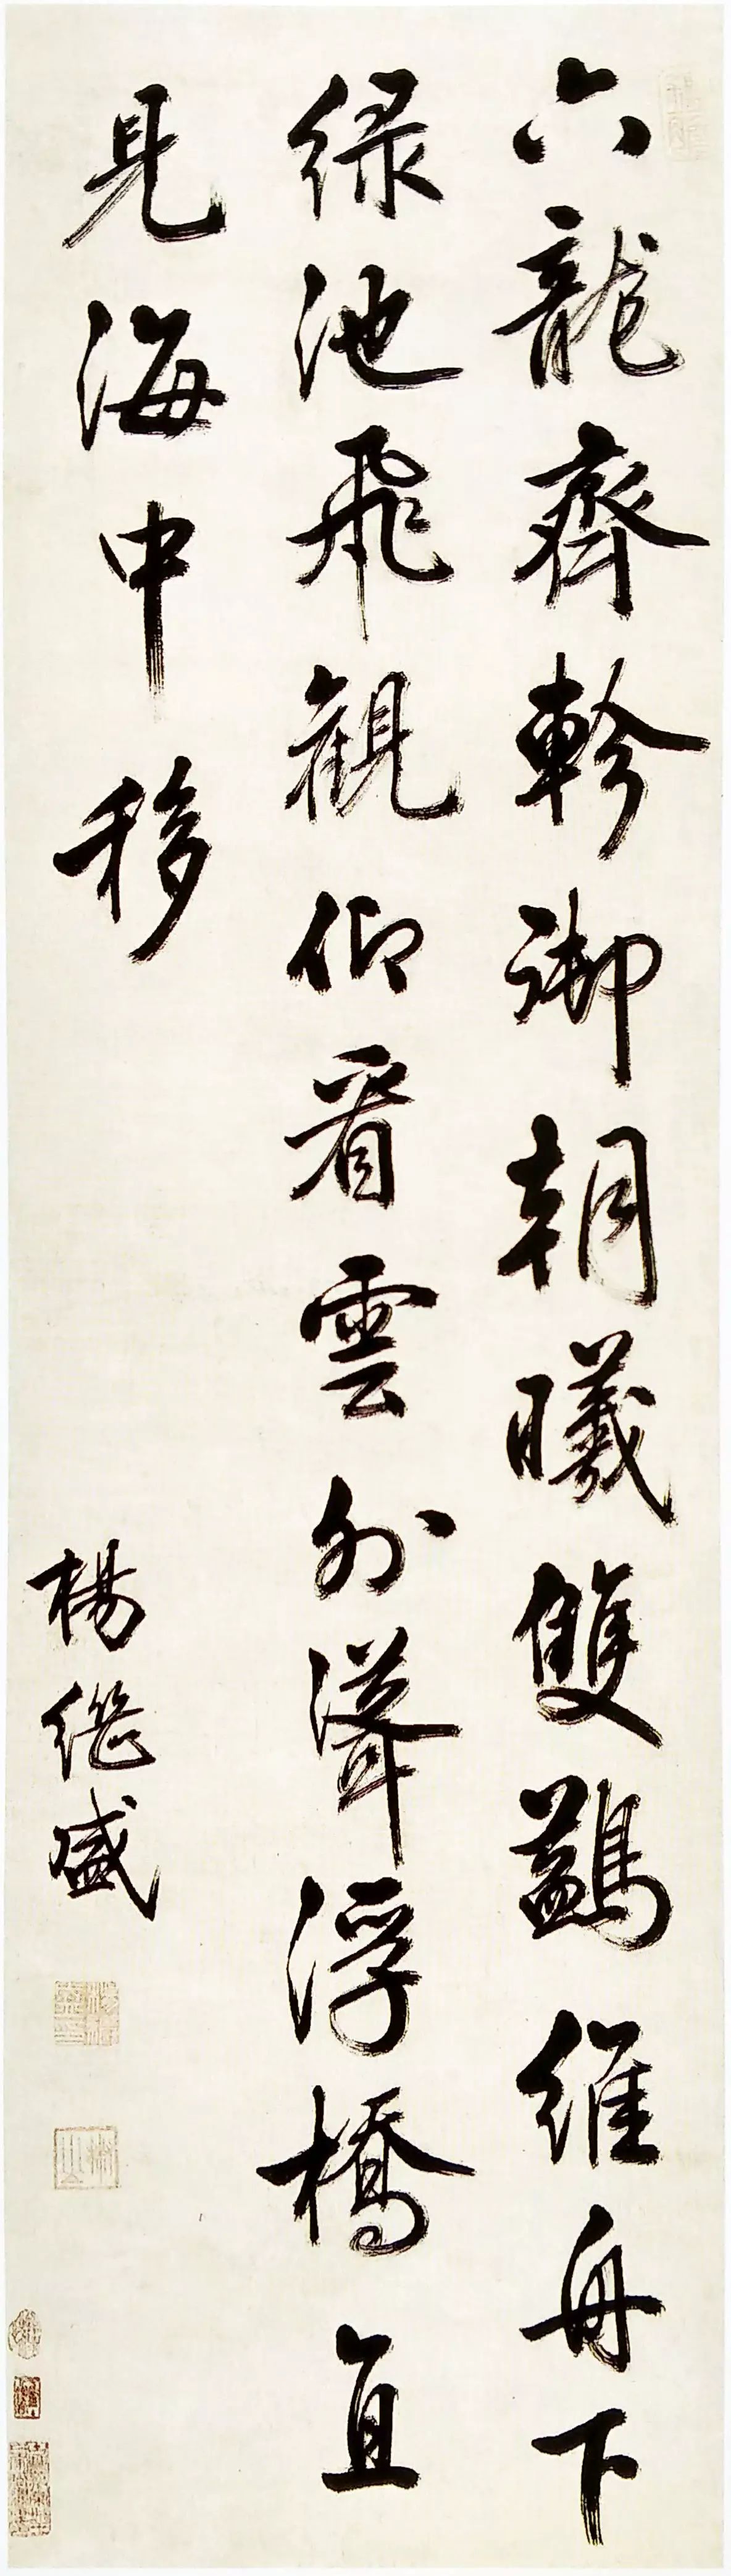 六龍齊軫御朝曦雙鷁維舟下
緑池飛觀仰看雲外聳浮橋直
見海中移
楊继盛